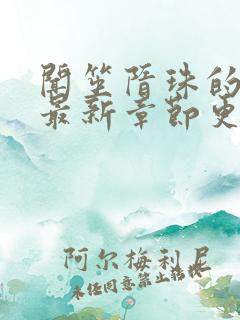 闻笙隋珠的
最新章节更
阿尔梅利尼
未经同意禁止转载